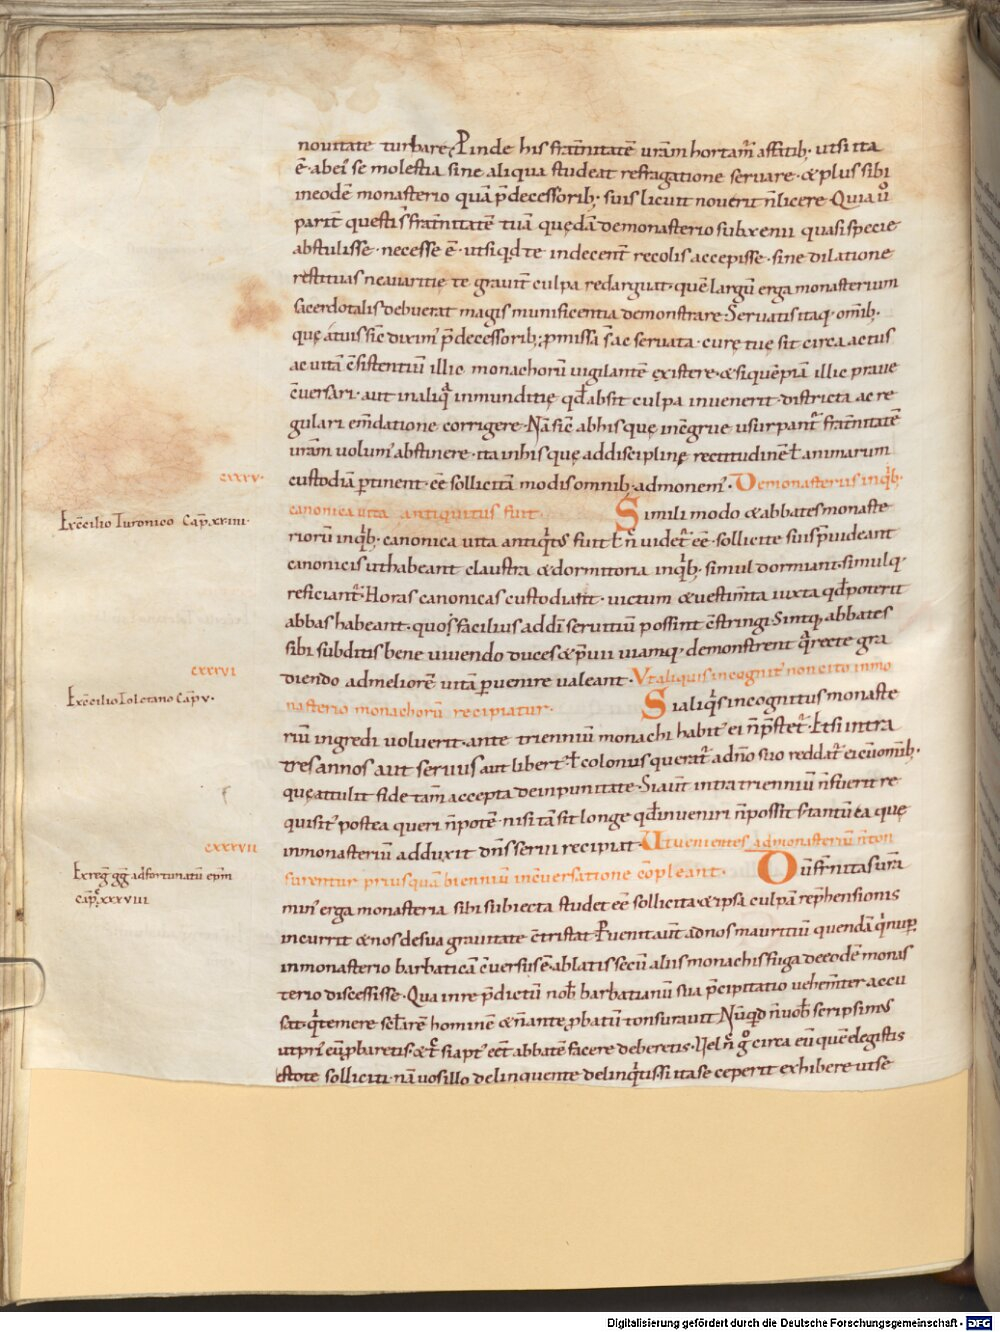 nouitate turbare; Pinde his fr̄aternitatē uram hortam̄ affatib; ut si ita
ē. ab ei se molestia sine aliqua studeat refragatione seruare. & plus sibi
in eodē monasterio quā p̄decessorib; suis licuit nouerit n̄ licere. Quia ů
parit̄ questi s̄ fr̄nitatē tuā quędā de monasterio sub xenii quasi specie
abstulisse. necesse ē. ut si qd te indecent̄ recolis accepisse. sine dilatione
restituas ne auaritię te grauit̄ culpa redarguat. quē largū erga monasterium
sacerdotalis debuerat magis munificentia demonstrare. Seruatis itaq. omīb;
quę a tuis sic̄ diximꝰ p̄decessorib; pmissa s̄ ac seruata. curę tuę sit circa actus
ac uitā c̄sistentiū illic monachorū uigilantē existere. & si quēpiā illic praue
c̄uersari. aut in aliq̄ inmunditię qd̄ absit culpa inuenerit. districta ac re
gulari em̄datione corrigere. Nā sic̄ ab his quę in c̄grue usurpant̄ fr̄nitatē
uram uolumꝰ abstinere. ita in his quę ad disciplinę rectitudinē ł animarum
custodiā ptinent. eē sollicitā modis omnib; admonemꝰ. De monasteriis in q̄b;
cxxxv.
canonica uita antiquitus fuit. Simili modo & abbates monaste
Ex c̄cilio Turonico Cap̄. xxiiii.
riorū in q̄b; canonica uita antiq̄tꝰ fuit ł n̄ uidet̄ eē. sollicite suis puideant
canonicis ut habeant claustra & dormitoria in q̄b; simul dormiant. simulq.
reficiant̄. Horas canonicas custodiant. uictum & uestim̄ta iuxta qd̄ poterit
abbas habeant. quo s̄ facilius ad dī seruitiū possint c̄stringi. Sintq; abbates
sibi subditis bene uiuendo duces & puii uiamq; demonstrent q̄ recte gra
diendo ad meliorē uitā puenire ualeant. Vt aliquis incognit̄ non cito in mo
cxxxvi
nasterio monachorū recipiatur. Si aliq̄s incognitus monaste
Ex c̄cilio Toletano Cap̄ v.
riū ingredi uoluerit. ante trienniū monachi habitꝰ ei n̄ p̄stet̄. Et si intra
tres annos aut seruus aut libertꝰ ł colonus querat̄ ad dn̄o suo reddat̄ ei cū omīb;
quę attulit fide tam̄ accepta de inpunitate. Si aut̄ intra trienniū n̄ fuerit re
quisitꝰ postea queri n̄ potē. nisi tā sit longe qd̄ inueniri n̄ possit. s; tantū ea quę
in monasteriū adduxit dn̄s serui recipiat. Ut uenientes ad monasteriū n̄ ton
cxxxvii
surentur priusquā bienniū in c̄uersatione cōpleant. Dū fr̄nitas ura
Ex reḡ gg ad fortunatū epm̄
cap̄. xxxviii
minꝰ erga monasteria sibi subiecta studet eē sollicita & ipsa culpā rep̄hensionis
incurrit & nos de sua grauitate c̄tristat. Puenit aut̄ ad nos mauritiū quendā q̄ nup
in monasterio barbaticā c̄uersus ē. ablatis secū aliis monachis fuga de eodē monas
terio discessisse. Qua in re p̄dictū nob̄ barbatianū sua p̄cipitatio uehem̄ter accu
sat. q̄ temere scl̄arē hominē & n̄ ante pbatū tonsurauit. Nūqd n̄ uob̄ scripsimꝰ
ut priꝰ eū pbaretis. & t̄ si aptꝰ eēt abbatē facere deberetis. Vel n̄ ḡ circa eū quē elegistis
estote solliciti. nā uos illo delinquente delinq̄tis si ita se ceperit exhibere ut se
Digitalisierung gefördert durch die Deutsche Forschungsgemeinschaft - DFG